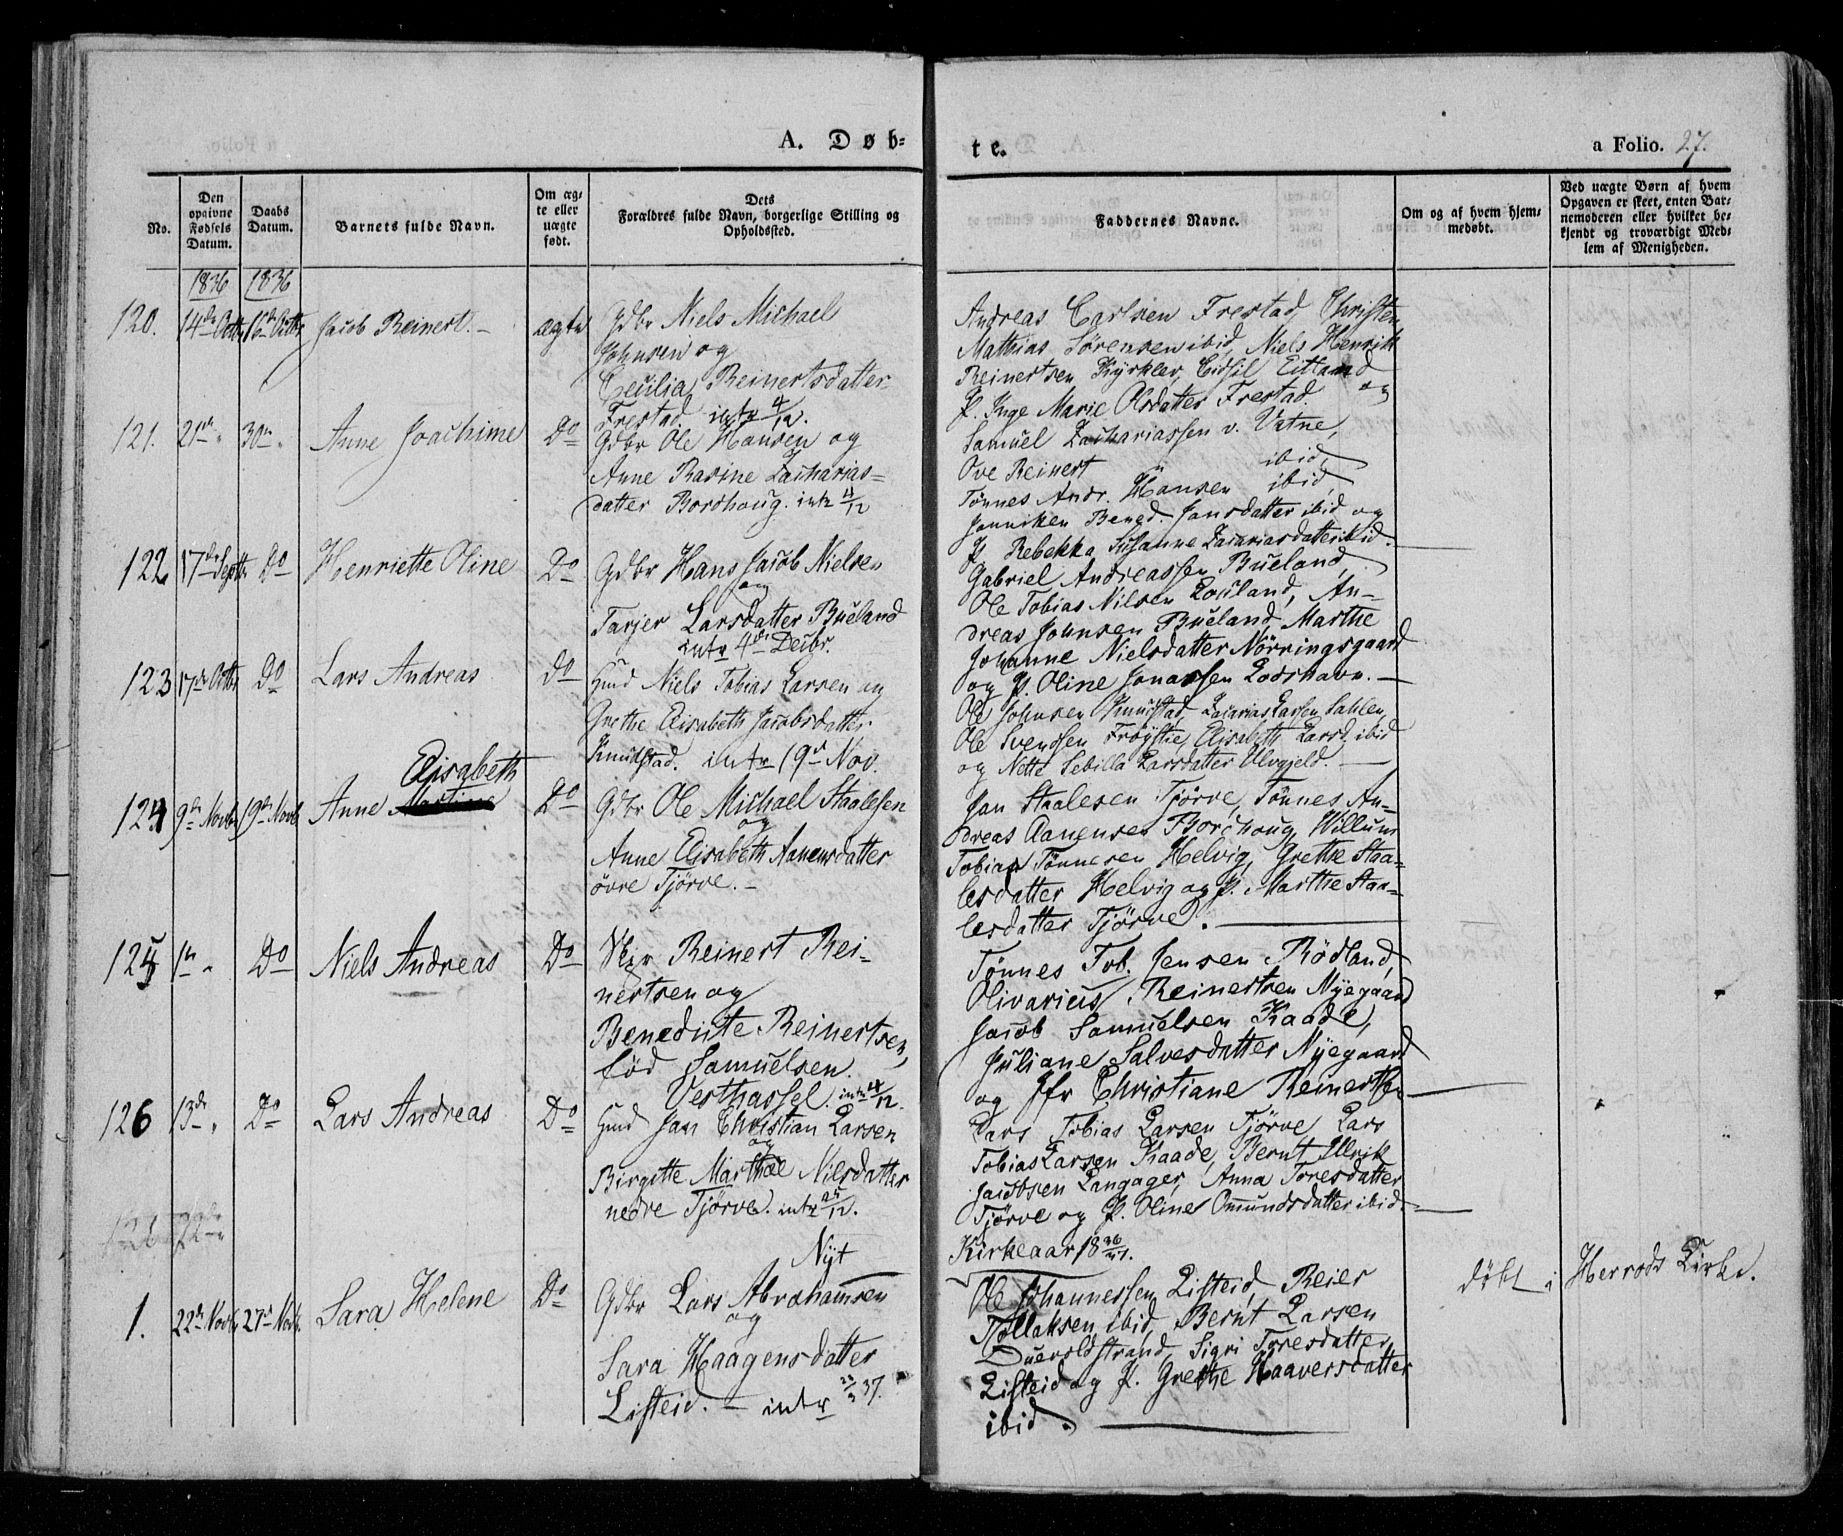 A. Døb-
te.
a Folio. 27.
No.
Den opgivne Fødsels Datum.
Daabs Datum.
Barnets fulde Navn.
Om ægte eller uægte født.
Dets Forældres fulde Navn, borgerlige Stilling og Opholdssted.
Faddernes Navne.
Om og af hvem hjemmedøbt.
Ved uægte Børn af hvem Opgaven er skeet, enten Barnemoderen eller hvilket bekjendt og troværdigt Medlem af Menigheden.
1836 1836
120. 14de Octbr 16de Octbr Jacob Reinert. - ægte Gdbr Niels Michael
Johnsen og
Cecilia Reinertsdatter
Frestad. intr 4/12.
Andreas Carlsen Frestad, Christen
Mathias Sörensen ibid, Niels Henrik
Reinertsen Kyrklev, Eidsil Eitland og
P. Inge Marie Olsdatter Frestad.
121. 21de " 30te " Anne Joachime Do Gdbr Ole Hansen og
Anne Rasine Zacharias-
datter Borchoug. intr 4/12
Samuel Zachariassen v. Vatne,
Ove Reinert ibid,
Tönnes Andr. Hansen ibid
Janniken Bened. Jansdatter ibid og
P. Rebekka Susanne Zacariasdatter ibid.
122 17de Septbr Do Henriette Oline Do Gdbr Hans Jacob Nielsen
og
Tarjer Larsdatter Bueland
intr 4de Decbr.
Gabriel Andreassen Bueland,
Ole Tobias Nilsen Louland, An-
dreas Johnsen Bueland, Marthe
Johanne Nielsdatter Nörringsgaard
og P. Oline Jonassen Lodshavn.
123 17de Octbr Do Lars Andreas Do Huusd Niels Tobias Larsen og
Grethe Elisabeth Jacobsdatter
Knudstad. intr 19de Nov.
Ole Johnsen Knudstad, Zacarias Larsen Sahlen,
Ole Svendsen Fröystie, Elisabeth Larsd. ibid
og Nette Sebilla Larsdatter Ulvgjeld.
Elisabeth
124 9de Novbr 19de Novb Anne Martine Do Gdbr Ole Michael Staalesen
og
Anne Elisabeth Aanensdatter
övre Tjörve. -
Jan Staalesen Tjörve, Tönnes An-
dreas Aanensen Borchoug, Willum
Tobias Tönnesen Helvig, Grethe Staa-
lesdatter Helvig og P. Marthe Staa-
lesdatter Tjörve.
125 1ste " Do Niels Andreas Do Skpr Reinert Rei-
nertsen og
Benedicte Reinertsen,
född Samuelsen.
Vesthassel. intr 4/12.
Tönnes Tob. Jensen Rödland,
Olivarius Reinertsen Nyegaard
Jacob Samuelsen Kaade,
Juliane Salvesdatter Nyegaard
og Jfr Christiane Reinertsen
126 13de " Do Lars Andreas Do Huusd Jan Christian Larsen
og
Birgitte Marthae Nilsdatter
nedre Tjörve. intr 25/12.
Lars Tobias Larsen Tjörve, Lars
Tobias Larsen Kaade, Bernt Ulrik
Jacobsen Langager, Anna Toresdatter
Tjörve og P. Oline Omundsdatter ibid.
Nyt
Kirkeaar 1836/37.
1. 22de Novbr 27de Novb. Sara Helene Do Gdbr Lars Abrahamsen
og
Sara Haagensdatter
Listeid. - intr 23/3 37.
Ole Johannessen Listeid, Reier
Tollaksen ibid, Bernt Larsen
Duevoldstrand, Sigri Toresdatter
Listeid og P. Grethe Haaversdatter
ibid.
döbt i Herrods Kirke.